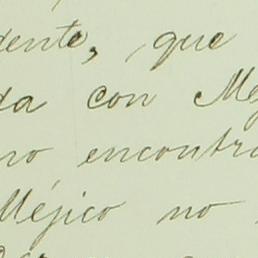 dente, que
da con Mé
no encontra
Méjico no